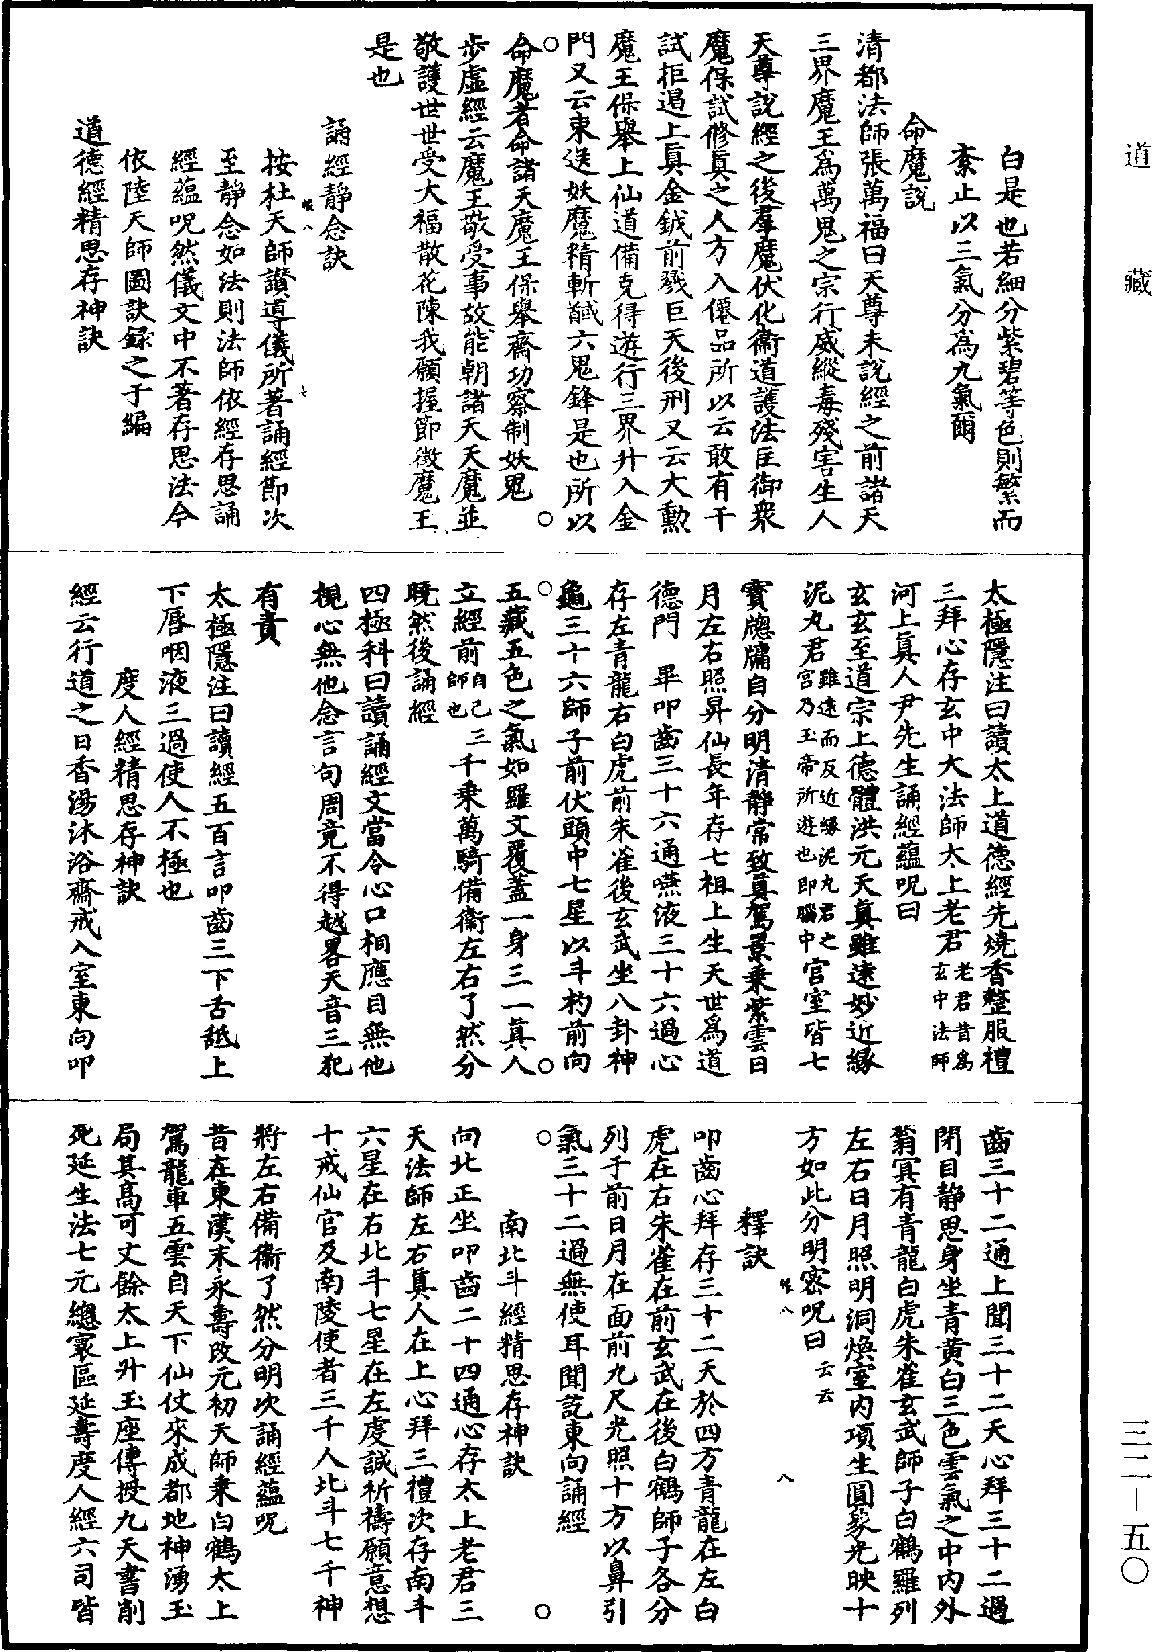 道藏
白是也若細分紫碧等色則繁而
紊止以三氣分為九氣爾
命魔說
清都法師張萬福曰天尊未說經之前諸天
三界魔王為萬鬼之宗行威縱毒殘害生人
天尊說經之後羣魔伏化衞道護法臣御衆
魔保試修真之人方入僊品所以云敢有干
試拒遏上真金鉞前戮巨天後刑又云大勲
魔王保舉上仙道備克得遊行三界升入金
門又云束送妖魔精斬馘六鬼鋒是也所以
命魔者命諸天魔王保舉齋功察制妖鬼
步虛經云魔王敬受事故能朝諸天天魔並
敬護世世受大福散花陳我願握節徵魔王
是也
誦經靜念訣
按杜天師讃導儀所著誦經節次
至靜念如法則法師依經存思誦
經蘊呪然儀文中不著存思法今
依陸天師圖訣録之于編
道德經精思存神訣
太極隱注曰讀太上道德經先燒香整服禮
三拜心存玄中大法師太上老君老君昔為玄中法師
河上真人尹先生誦經蘊呪曰
玄玄至道宗上德體洪元天真雖遠妙近緣
泥丸君雖遠而反近緣泥丸君之宮乃玉帝所遊也即腦中官室皆七
寳牕牖自分明清靜常致真駕景乘紫雲日
月左右照昇仙長年存七祖上生天世為道
德門 畢叩齒三十六通嚥液三十六過心
存左青龍右白虎前朱雀後玄武坐八卦神
龜三十六師子前伏頭中七星以斗杓前向
五藏五色之氣如羅文覆蓋一身三一真人
立經前自己師也三千乘萬騎備衞左右了然分
曉然後誦經
四極科曰讀誦經文當令心口相應目無他
視心無他念言句周竟不得越畧天音三犯
有責
太極隱注曰讀經五百言叩齒三下舌舐上
下唇咽液三過使人不極也
度人經精思存神訣
經云行道之日香湯沐浴齋戒入室東向叩
齒三十二通上聞三十二天心拜三十二過
閉目靜思身坐青黃白三色雲氣之中內外
蓊冥有青龍白虎朱雀玄武師子白鶴羅列
左右日月照明洞煥室内項生圓象光映十
方如此分明密呪曰云云
釋訣
叩齒心拜存三十二天於四方青龍在左白
虎在右朱雀在前玄武在後白鶴師子各分
列于前日月在面前九尺光照十方以鼻引
氣三十二過無使耳聞訖東向誦經
南北斗經精思存神訣
向北正坐叩齒二十四通心存太上老君三
天法師左右真人在上心拜三禮次存南斗
六星在右北斗七星在左虔誠祈禱願意想
十戒仙官及南陵使者三千人北斗七千神
將左右備衞了然分明次誦經蘊呪
昔在東漢末永壽改元初天師乘白鶴太上
駕龍車五雲自天下仙仗來成都地神湧玉
局其高可丈餘太上升玉座傳授九天書削
死延生法七元總寰區延壽度人經六司皆
三二—五〇